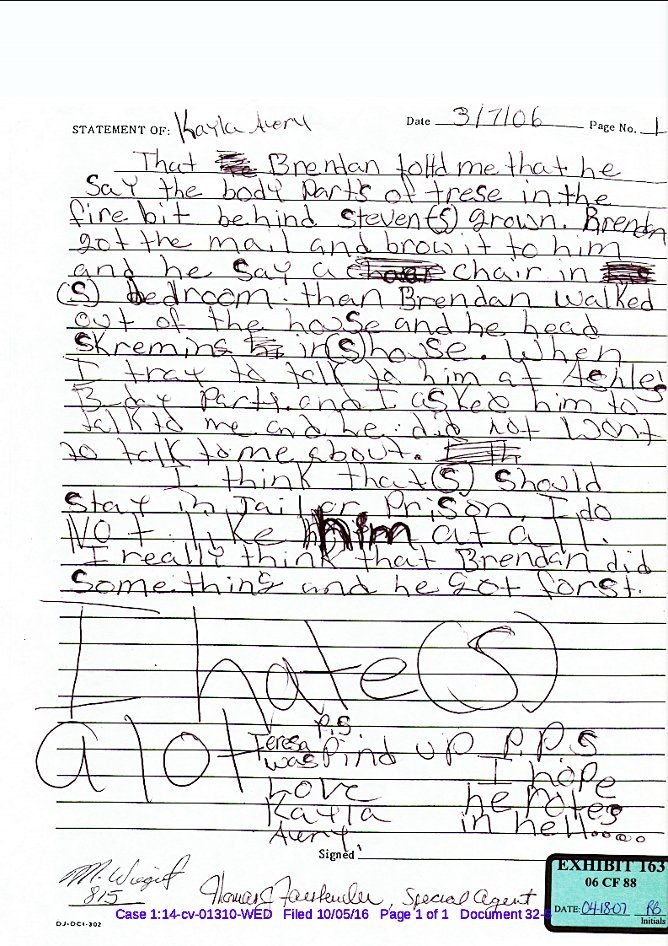 STATEMENT OF: Kayla Avery Date 3/7/06 Page No. 1
That Brendan tolld me that he
Say the body parts of trese in the
fire bit behind Steven(s) grown. Brendan
got the mail and brow it to him
and he say a chair in
(S) bedroom. than Brendan walked
out of the house and he head
skremins in (S) house. When
I tray to talk to him at Ashles
B-day Party. and I asked him to
talk to me and he did not wont
to talk to me about.
I think that (S) should
stay in Jail or Prison. I do
Not like him at all.
I really think that Brendan did
Something and he got forst.
I hate (S)
a lot
P.S
Teresa
was Pind up P.P.S
Love I hope
Kayla he rotes
Avery in hell.....
Signed
M. Wiegert
815
Thomas J. Fassbender, Special Agent
EXHIBIT 163
06 CF 88
DATE: 04-18-07 RB
Initials
Case 1:14-cv-01310-WED Filed 10/05/16 Page 1 of 1 Document 32-
DJ-DCI-302